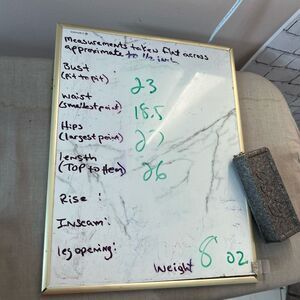 measurements taken flat across
approximate to 1/2 inch
Bust
(Pit to Pit) 23
Waist
(smallest point) 18.5
Hips
(largest point)
Length
(TOP to Hem) 26
Rise :
Inseam :
leg opening :
Weight 8 oz